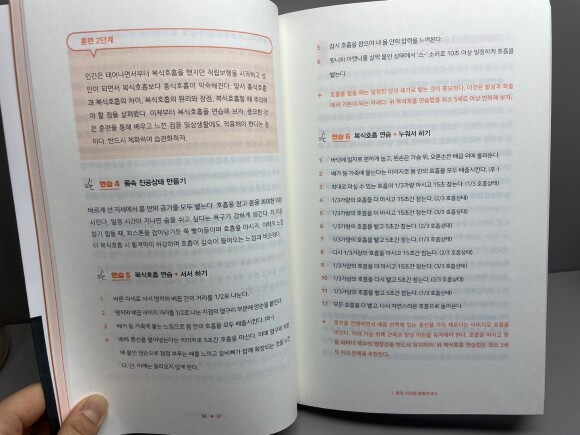 훈련 2단계
인간은 태어나면서부터 복식호흡을 했지만 직립보행을 시작하고 성
인이 되면서 복식호흡보다 흉식호흡이 익숙해진다. 앞서 흉식호흡
과 복식호흡의 차이, 복식호흡의 원리와 장점, 복식호흡할 때 주의해
야 할 점을 살펴봤다. 이제부터 복식호흡을 연습해 보자. 중요한 것
은 훈련을 통해 배우고 느낀 점을 일상생활에도 적용해야 한다는 점
이다. 반드시 체화하며 습관화하자.
연습 4 몸속 진공상태 만들기
바르게 선 자세에서 몸 안의 공기를 모두 뱉는다. 호흡을 참고 몸을 최대한 이완
시킨다. 일정 시간이 지나면 숨을 쉬고 싶다는 욕구가 강하게 생긴다. 더 이상
참기 힘들 때, 피스톤을 잡아당기듯 훅 빨아들이며 호흡을 마신다. 이때의 느낌
이 복식호흡 시 횡격막이 하강하며 호흡이 깊숙이 들어오는 느낌과 비슷하다.
연습 5 복식호흡 연습 + 서서 하기
1 바른 자세로 서서 명치와 배꼽 간의 거리를 1/2로 나눈다.
2 명치와 배꼽 사이의 거리를 1/2로 나눈 지점의 옆구리 부분에 양손을 붙인다.
3 배가 등 가죽에 붙는 느낌으로 몸 안의 호흡을 모두 배출시킨다. (후-)
4 배에 풍선을 불어넣는다는 이미지로 5초간 호흡을 마신다. 이때 옆구리 부분
에 붙인 양손으로 점점 부푸는 배를 느끼고 갈비뼈가 함께 확장되는 것을 느낀
다. 단, 어깨는 올라오지 않게 한다.
36 + 37
5 잠시 호흡을 참으며 내 몸 안의 압력을 느껴본다.
6 윗니와 아랫니를 살짝 붙인 상태에서 '스-' 소리로 10초 이상 일정하게 호흡을
뱉는다.
+ 호흡을 뱉을 때는 일정한 양과 세기로 뱉는 것이 중요하다. 이것은 발성과 화술
에서 기본이 되는 자세다. 위 복식호흡 연습법을 최소 5세트 이상 반복해 보자.
연습 6 복식호흡 연습 + 누워서 하기
1 바닥에 일자로 편하게 눕고, 왼손은 가슴 위, 오른손은 배꼽 위에 올려둔다.
2 배가 등 가죽에 붙는다는 이미지로 몸 안의 호흡을 모두 배출시킨다. (후-)
3 최대로 마실 수 있는 호흡의 1/3가량을 마시고 15초 참는다. (1/3 호흡상태)
4 1/3가량의 호흡을 더 마시고 15초간 참는다. (2/3 호흡상태)
5 1/3가량의 호흡을 더 마시고 15초간 참는다. (3/3 호흡상태)
6 1/3가량의 호흡을 뱉고 5초간 참는다. (2/3 호흡상태)
7 1/3가량의 호흡을 뱉고 5초간 참는다. (1/3 호흡상태)
8 다시 1/3가량의 호흡을 마시고 15초간 참는다. (2/3 호흡상태)
9 1/3가량의 호흡을 더 마시고 15초간 참는다. (3/3 호흡상태)
10 1/3가량의 호흡을 뱉고 5초간 참는다. (2/3 호흡상태)
11 1/3가량의 호흡을 뱉고 5초간 참는다. (1/3 호흡상태)
12 모든 호흡을 다 뱉고, 다시 자연스러운 호흡으로 돌아온다.